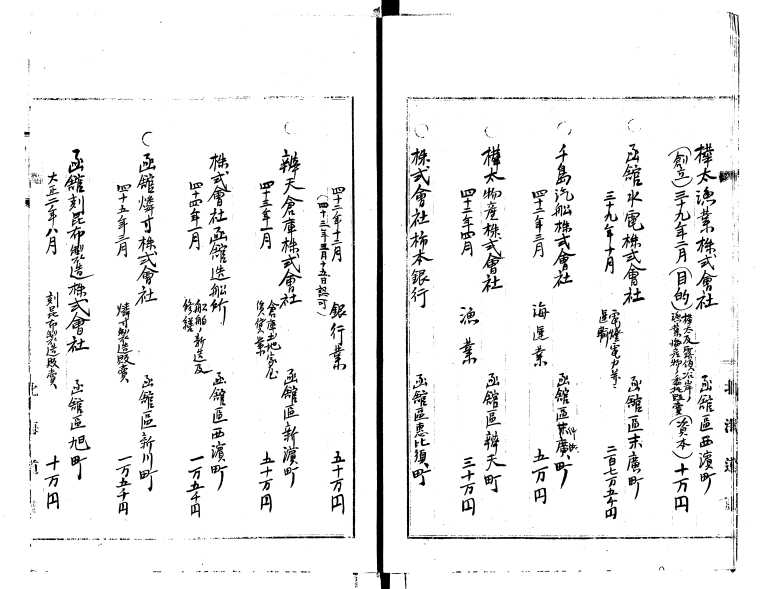 樺太漁業株式會社 函館區西濱町
(創立)三十九年二月(目的)樺太及露領沿岸漁業海産物ノ委托販賣(資本)十万円
函館水電株式會社 函館區末廣町
三十九年十月 電燈電力 運輸 二百七万五千円
千島汽船株式會社 函館區末廣町
四十二年三月 海運業 五万円
樺太物産株式會社 函館區辨天町
四十二年四月 漁業 三十万円
株式會社柿本銀行 函館區恵比須町
四十二年十二月 銀行業 五十万円
(四十三年三月十五日認可)
辨天倉庫株式會社 函館區新濱町
四十三年一月 倉庫土地家屋賃貸業 五十万円
株式會社函館造船所 函館區西濱町
四十四年一月 船舶ノ新造及修繕 一万五千円
函館燐寸株式會社 函館區新川町
四十五年三月 燐寸製造販賣 一万五千円
函館刻昆布製造株式會社 函館區旭町
大正二年八月 刻昆布製造販賣 十万円
北海道
北海道